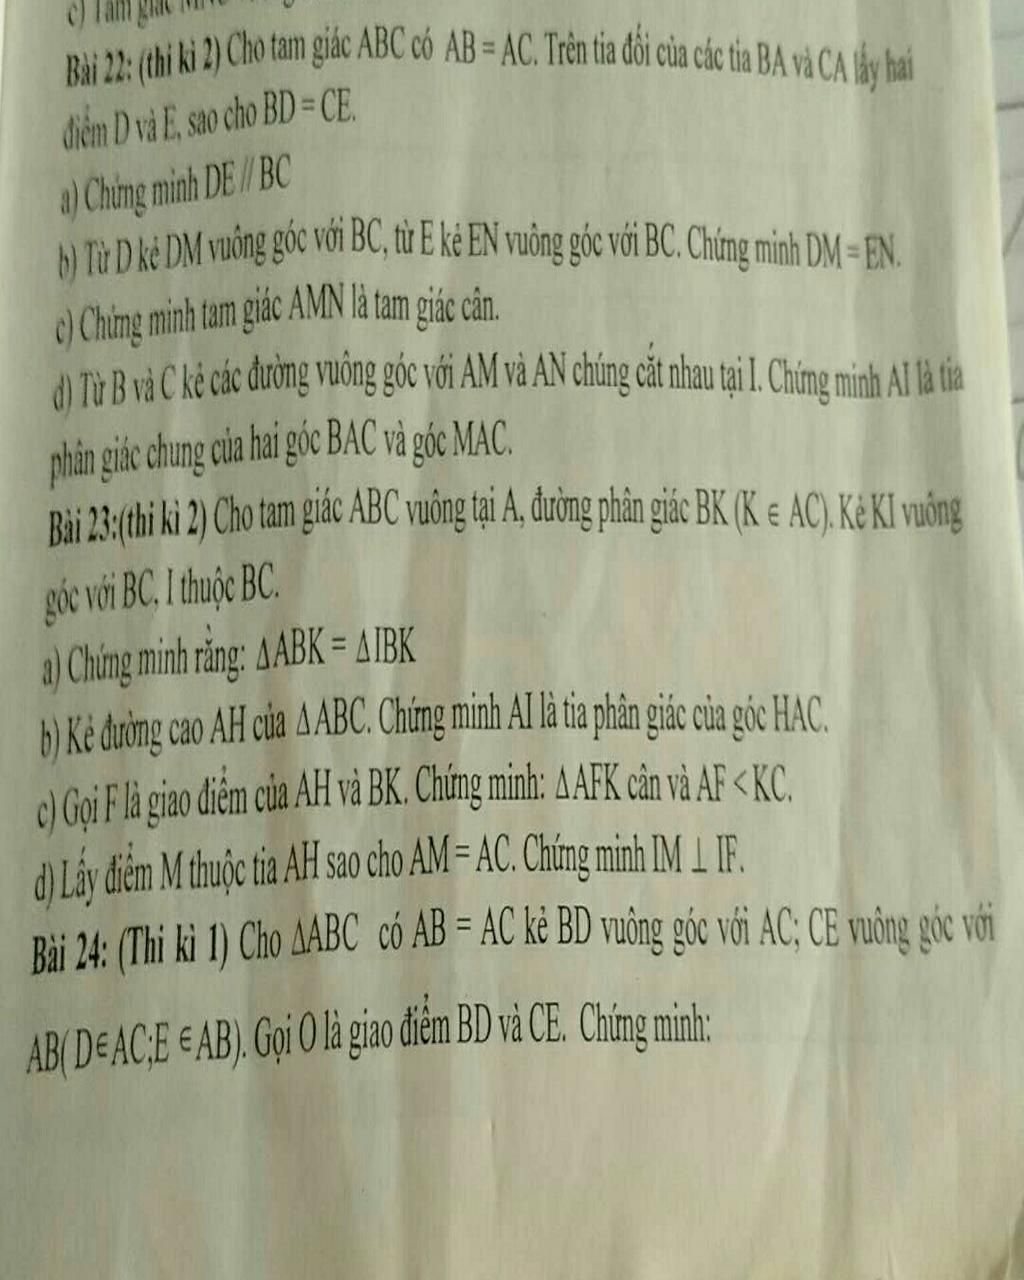 c) Tam giác
Bài 22: (thi kì 2) Cho tam giác ABC có AB = AC. Trên tia đối của các tia BA và CA lấy hai
điểm D và E, sao cho BD = CE.
a) Chứng minh DE // BC
b) Từ D kẻ DM vuông góc với BC, từ E kẻ EN vuông góc với BC. Chứng minh DM = EN.
c) Chứng minh tam giác AMN là tam giác cân.
d) Từ B và C kẻ các đường vuông góc với AM và AN chúng cắt nhau tại I. Chứng minh AI là tia
phân giác chung của hai góc BAC và góc MAC.
Bài 23:(thi kì 2) Cho tam giác ABC vuông tại A, đường phân giác BK (K ∈ AC). Kẻ KI vuông
góc với BC, I thuộc BC.
a) Chứng minh rằng: ΔABK = ΔIBK
b) Kẻ đường cao AH của ΔABC. Chứng minh AI là tia phân giác của góc HAC.
c) Gọi F là giao điểm của AH và BK. Chứng minh: ΔAFK cân và AF < KC.
d) Lấy điểm M thuộc tia AH sao cho AM = AC. Chứng minh IM ⊥ IF.
Bài 24: (Thi kì 1) Cho ΔABC có AB = AC kẻ BD vuông góc với AC; CE vuông góc với
AB( D∈AC;E ∈AB). Gọi O là giao điểm BD và CE. Chứng minh: